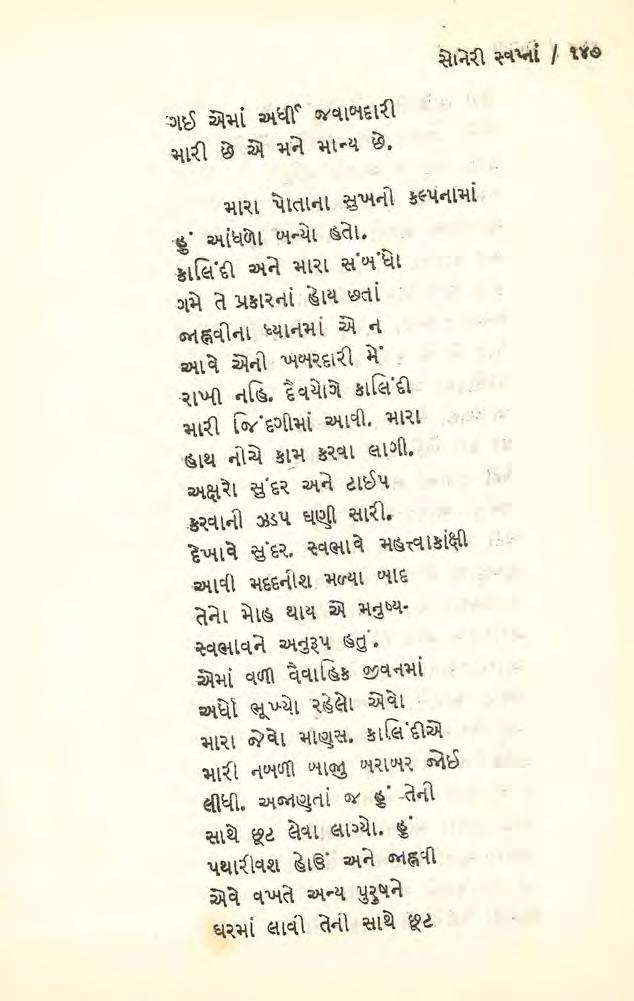 સોનેરી સ્વપ્નાં / ૧૪૭
ગઈ એમાં અર્ધી જવાબદારી
મારી છે એ મને માન્ય છે.
મારા પોતાના સુખની કલ્પનામાં
હું આંધળો બન્યો હતો.
કાલિંદી અને મારા સંબંધો
ગમે તે પ્રકારનાં હોય છતાં
જાહ્નવીના ધ્યાનમાં એ ન
આવે એની ખબરદારી મેં
રાખી નહિ. દૈવયોગે કાલિંદી
મારી જિંદગીમાં આવી. મારા
હાથ નીચે કામ કરવા લાગી.
અક્ષરો સુંદર અને ટાઈપ
કરવાની ઝડપ ઘણી સારી.
દેખાવે સુંદર. સ્વભાવે મહત્ત્વાકાંક્ષી
આવી મદદનીશ મળ્યા બાદ
તેનો મોહ થાય એ મનુષ્ય-
સ્વભાવને અનુરૂપ હતું.
એમાં વળી વૈવાહિક જીવનમાં
અર્ધો ભૂખ્યો રહેલો એવો
મારા જેવો માણસ. કાલિંદીએ
મારી નબળી બાજુ બરાબર જોઈ
લીધી. અજાણતાં જ હું તેની
સાથે છૂટ લેવા લાગ્યો. હું
પથારીવશ હોઉં અને જાહ્નવી
એવે વખતે અન્ય પુરુષને
ઘરમાં લાવી તેની સાથે છૂટ